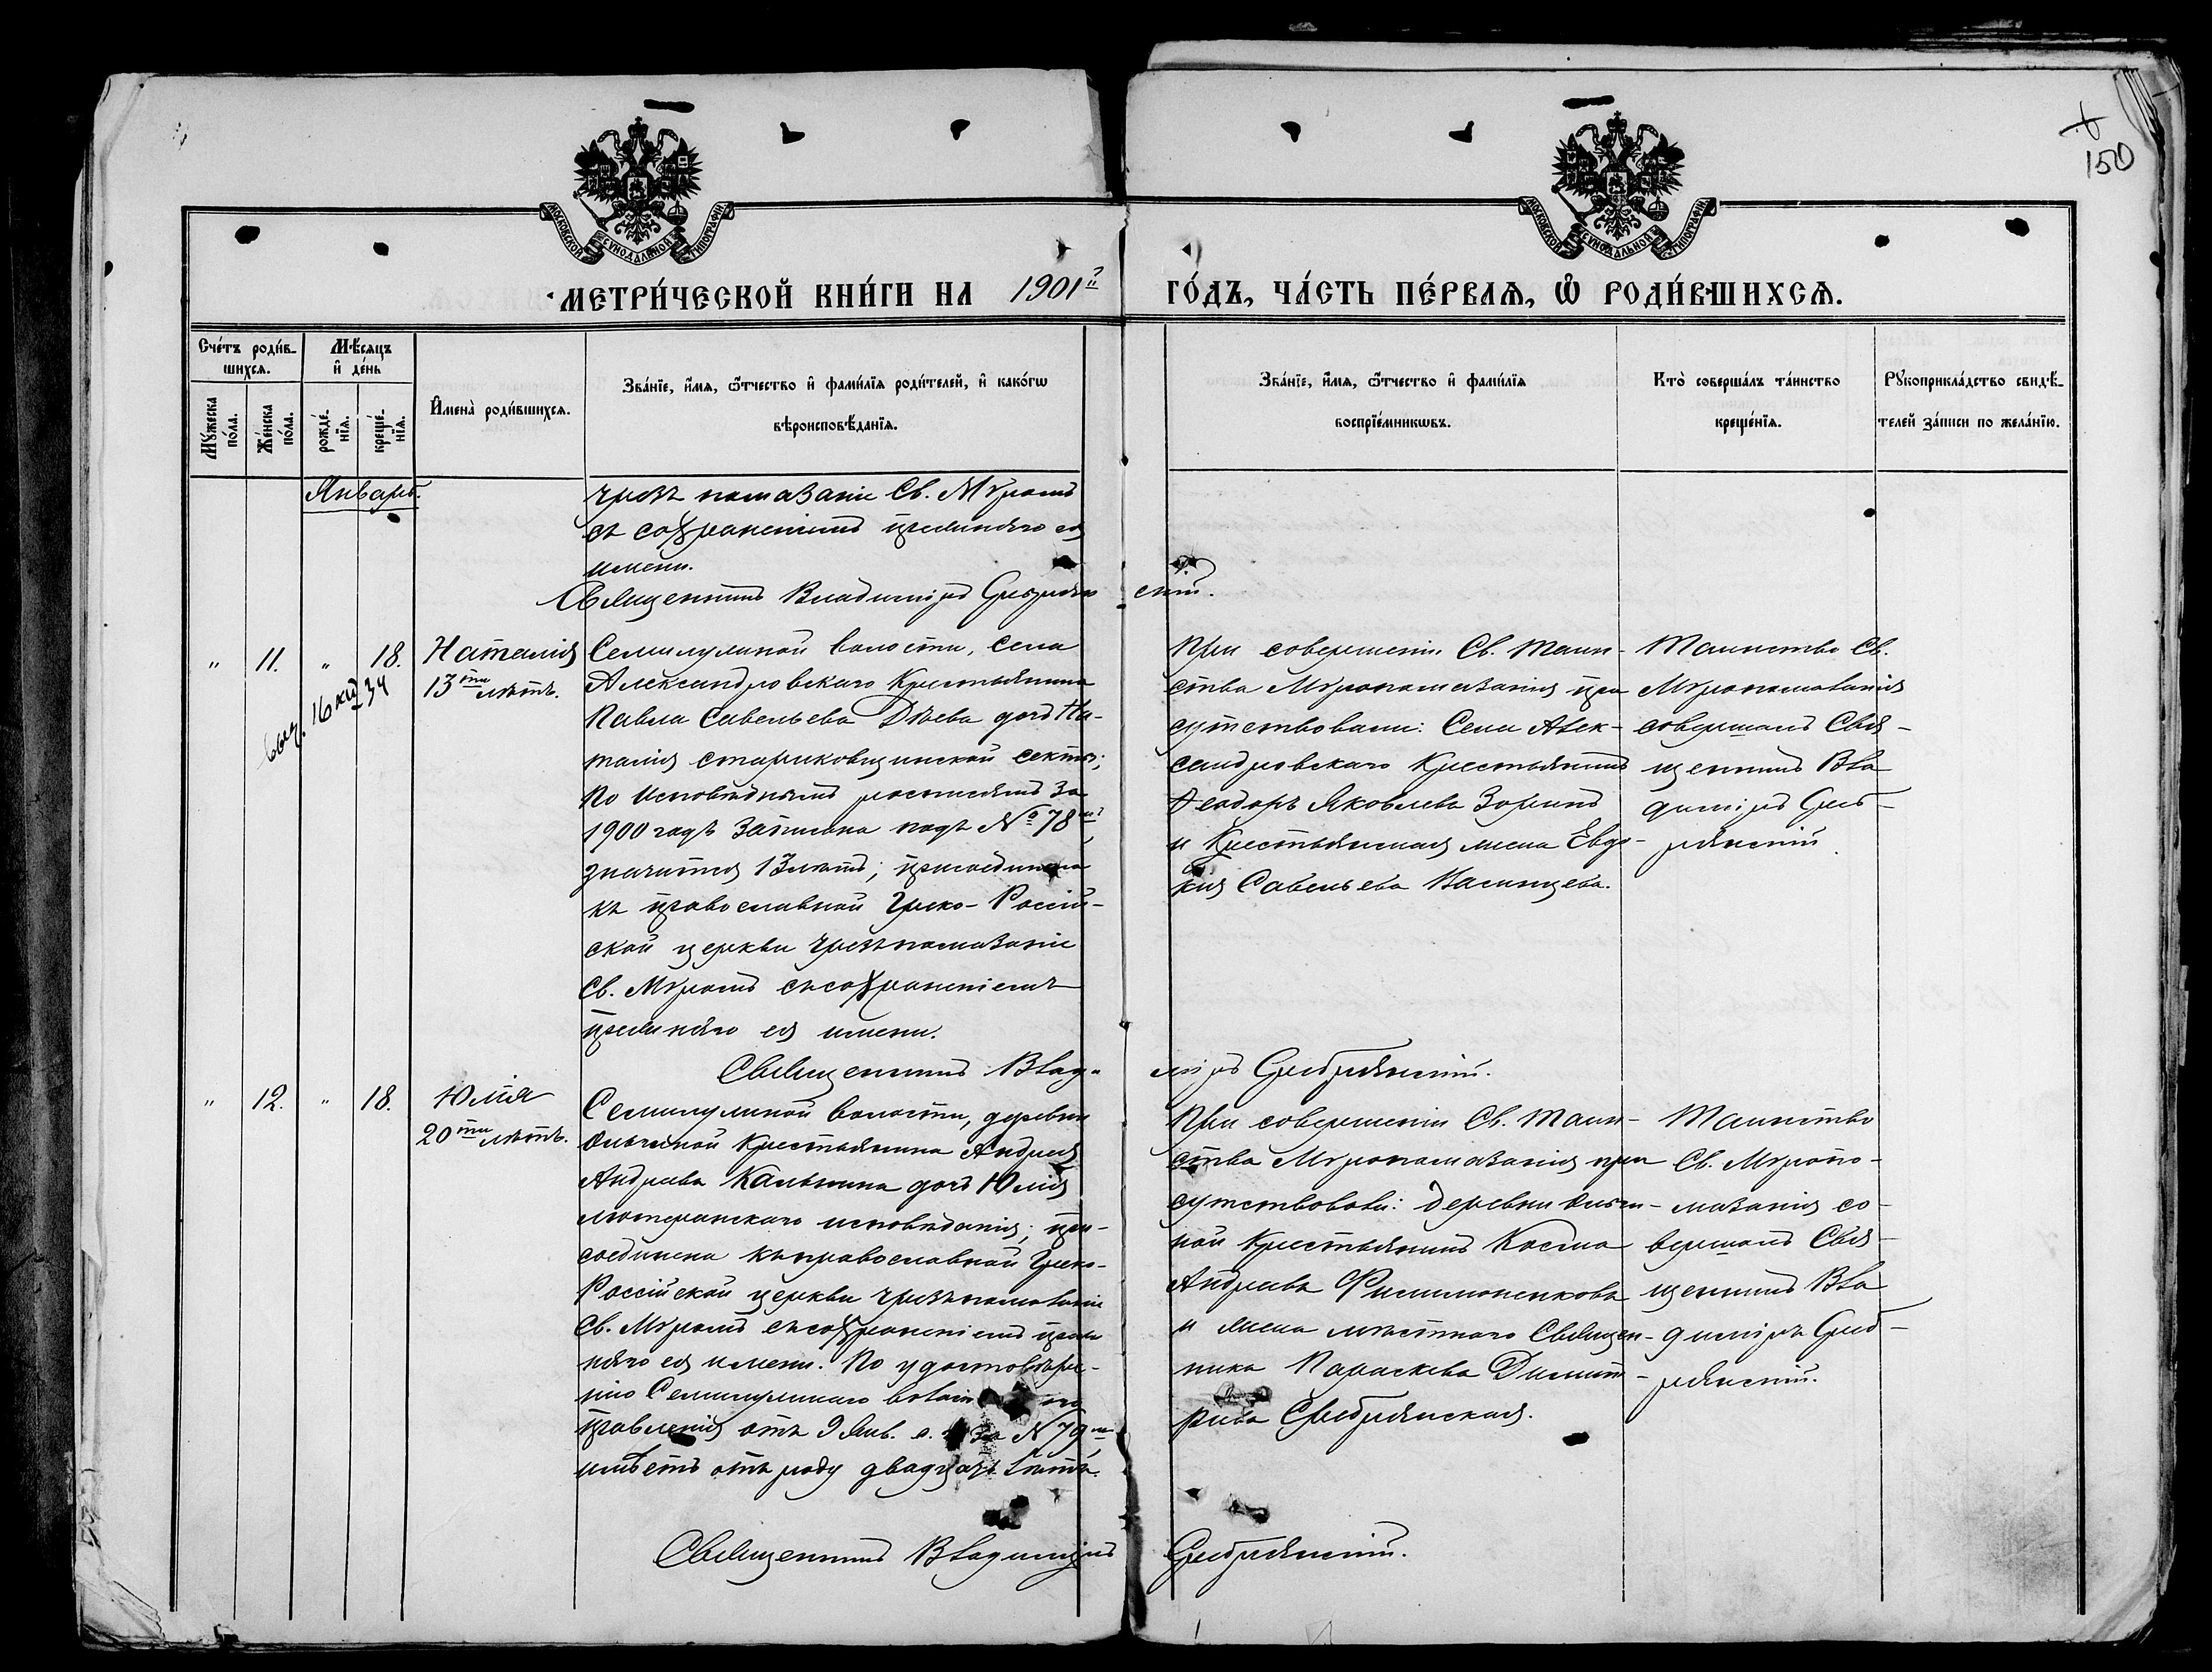 150
МОСКОВСКОЙ СѴНОДАЛЬНОЙ ТИПОГРАФІИ
МОСКОВСКОЙ СѴНОДАЛЬНОЙ ТИПОГРАФІИ
МЕТРИ́ЧЕСКОЙ КНИ́ГИ НА 1901й ГО́ДЪ, ЧА́СТЬ ПЕ́РВАѦ, Ѡ҆ РОДИ́ВШИХСѦ.
Сче́тъ роди́в-
шихсѧ.
Мꙋ́жеска по́ла.
Же́нска по́ла.
Мѣ́сѧцъ и҆ де́нь
рожде́-нїѧ.
креще́-нїѧ.
И҆мена̀ роди́вшихсѧ.
Зва́нїе, и҆́мѧ, ѻ҆́тчество и҆ фами́лїѧ роди́телей, и҆ како́гѡ
вѣроисповѣ́данїѧ.
Зва́нїе, и҆́мѧ, ѻ҆́тчество и҆ фами́лїѧ
воспрїе́мникѡвъ.
Кто̀ соверша́лъ та́инство
креще́нїѧ.
Рꙋкоприкла́дство свидѣ́-
телей за́писи по жела́нїю.
Январь.
чрезъ помазаніе Св. Мѵромъ
съ сохраненіемъ прежняго ея
имени.
Священникъ Владиміръ Сребрянскій.
" 11. " 18.
Наталія
13ти лѣтъ.
выд. 16 34
Семилужной волости, села
Александровскаго Крестьянина
Павла Савельева Дѣева дочь На-
талія стариковщинской секты;
по Исповѣднымъ росписямъ за
1900 годъ записана подъ № 78мъ,
значится 13 лѣтъ; присоединена
къ православной Греко-Россій-
ской церкви чрезъ помазаніе
Св. Мѵромъ съ сохраненіемъ
прежняго ея имени.
При совершеніи Св. Таин-
ства Мѵропомазанія при
сутствовали: Села Алек-
сандровскаго Крестьянинъ
Ѳеодоръ Яковлевъ Зоринъ
и Крестьянская жена Евдо-
кія Савельева Васильцева.
Таинство Св.
Мѵропомазанія
совершалъ Свя-
щенникъ Вла
диміръ Среб-
рянскій.
Священникъ Владиміръ Сребрянскій.
" 12. " 18.
Юлія
20ти лѣтъ.
Семилужной волости, деревни
Крестьянина Андрея
Андреева Кальнина дочь Юлія
лютеранскаго исповѣданія; при-
соединена къ православной Греко-
Россійской церкви чрезъ помазаніе
Св. Мѵромъ съ сохраненіемъ преж
няго ея имени. По удостовѣре-
нію Семилужнаго волостн
правленія отъ 9 Янв. с. г. за № 79мъ,
имѣетъ отъ роду двадцать лѣтъ.
При совершеніи Св. Таин-
ства Мѵропомазанія при
сутствовали: деревни
ной Крестьянинъ Косма
Андреевъ Филимоненковъ
и жена мѣстнаго Священ-
ника Параскева Димит-
ріева Сребрянская.
Таинство
Св. Мѵропо-
мазанія со-
вершалъ Свя-
щенникъ Вла
диміръ Среб-
рянскій.
Священникъ Владиміръ Сребрянскій.